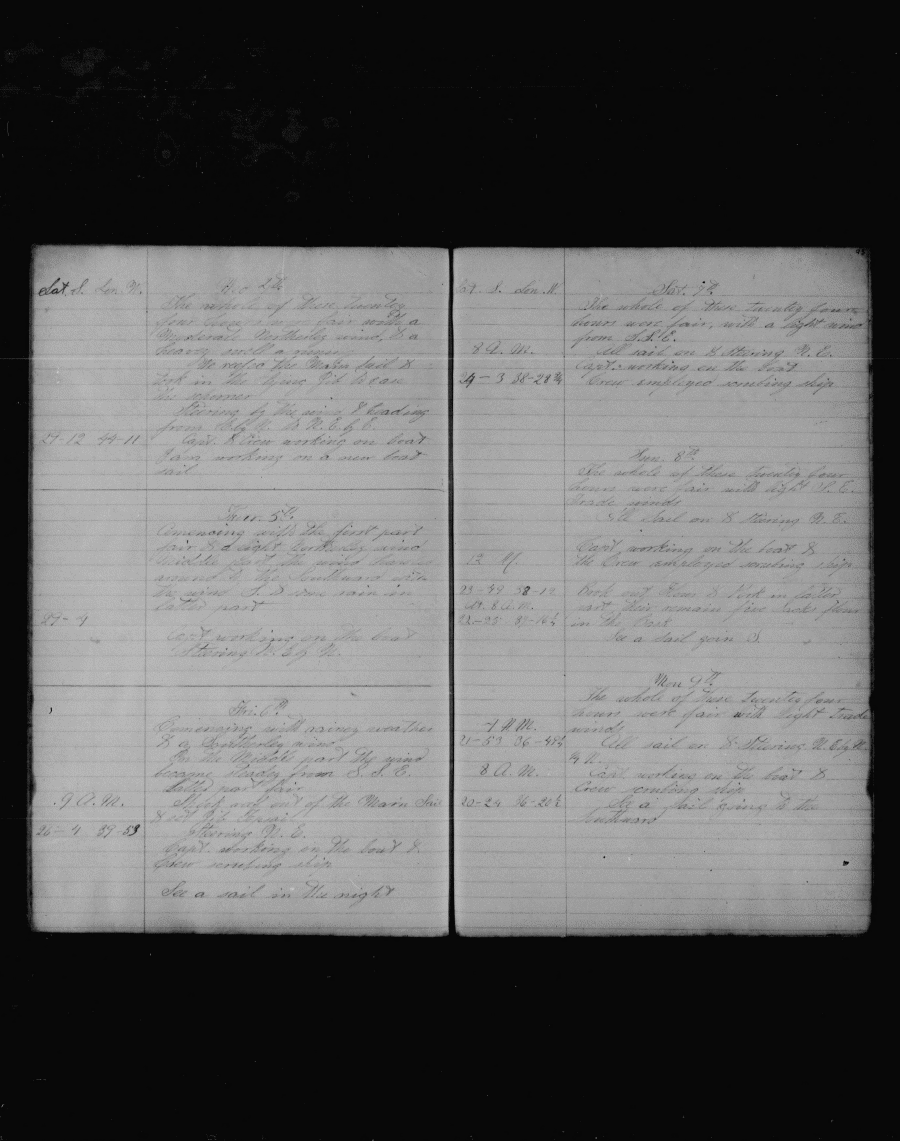 Lat. S. Lon. W.
The whole of these twenty
four hours were fair with a
Moderate Northerly wind, & a
heavy swell a
We reefed the Main Sail &
took in the Jib to ease
her
Steering by the wind & heading
from to N. E. by E.
27-12 44-11 Capt. & Crew working on boat
I am working on a new boat
sail
Thur. 5th
Comencing with the first part
fair & a light Northerly wind
middle part the wind
around to the Southward with
the wind S. & some rain in
latter part
27-
Capt working on the boat
Steering N. E. by N.
Fri. 6th
Comencing with rainey weather
& a Southerley wind
In the Middle part the wind
became steady from S. S. E.
Latter part fair
9 A. M. reef out of the Main Sail
& set Jib
26-4 39-53 Steering N. E.
Capt. working on the boat &
Crew scrubing ship
See a sail in the night
Lat. S. Lon. W.
Sat. 7th
The whole of these twenty four
hours were fair, with a light wind
from S. S. E.
8 A. M. All sail on & Steering N. E.
Capt. working on the boat
24-3 38-28 Crew employed scrubing ship
Sun. 8th
The whole of these twenty four
hours were fair with light S. E.
trade winds
All Sail on & stearing N. E.
Capt. working on the boat &
12 M. the Crew employed scrubing ship
23-49 38-12 Broke out Flour & Pork in latter
At. 8 A. M. part, their remain five Sacks flour
in the
See a sail goin S.
Mon 9th
The whole of these twenty four
hours were fair with light trade
winds
21-53 36-48 All sail on & Steering N. E. by N.
8 A. M. Capt working on the boat &
Crew scrubing ship
20-24 36-20 See a sail going to the
Southward